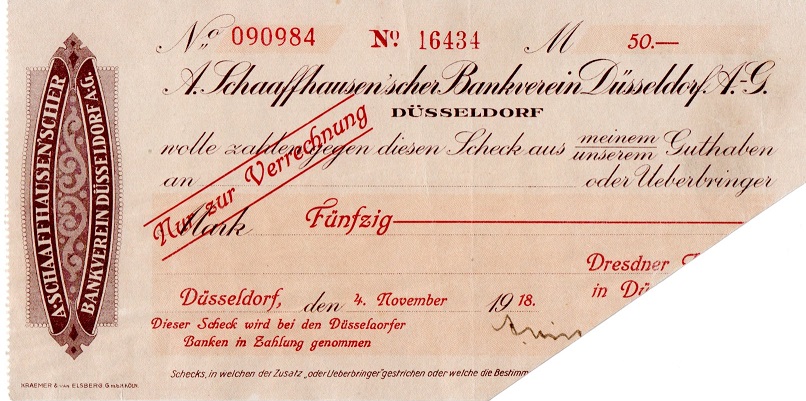 No 090984 No 16434 M 50.—
A. Schaaffhausen'scher Bankverein Düsseldorf A.-G.
DÜSSELDORF
Nur zur Verrechnung
wolle zahlen gegen diesen Scheck aus meinem
unserem Guthaben
an oder Ueberbringer
Mark Fünfzig
Dresdner
in Dü
Düsseldorf, den 4. November 1918.
Dieser Scheck wird bei den Düsselaorfer
Banken in Zahlung genommen
Schecks, in welchen der Zusatz „oder Ueberbringer" gestrichen oder welche die Bestimm
KRAEMER & VAN ELSBERG, G.m.b.H. KÖLN.
A. SCHAAFFHAUSEN'SCHER
BANKVEREIN DÜSSELDORF A.-G.